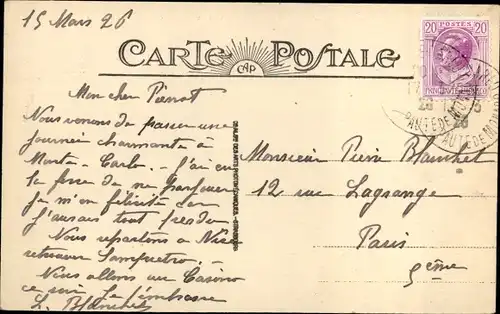 15 Mars 26
CARTE POSTALE
CAP
20 POSTES 20
Mon cher Pierrot
Nous venons de passer une
journée charmante à
Monte-Carlo - j'ai eu
la force de ne
je m'en félicite car
j'aurais tout perdu
Nous repartons à Nice
retrouver
Nous allons au Casino
ce soir. Je t'embrasse
L. Blanchet
Monsieur Pierre Blanchet
12 rue Lagrange
Paris
5ème